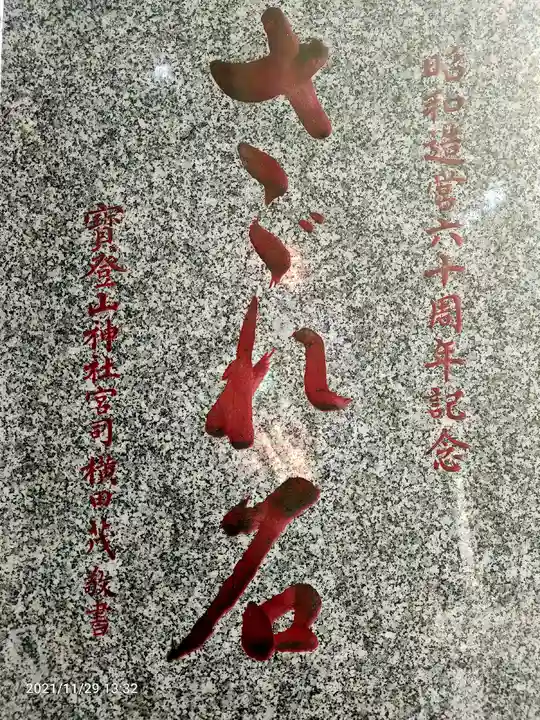 昭和造営六十周年記念
さゞれ石
寳登山神社宮司 横田茂 敬書
2021/11/29 13:32